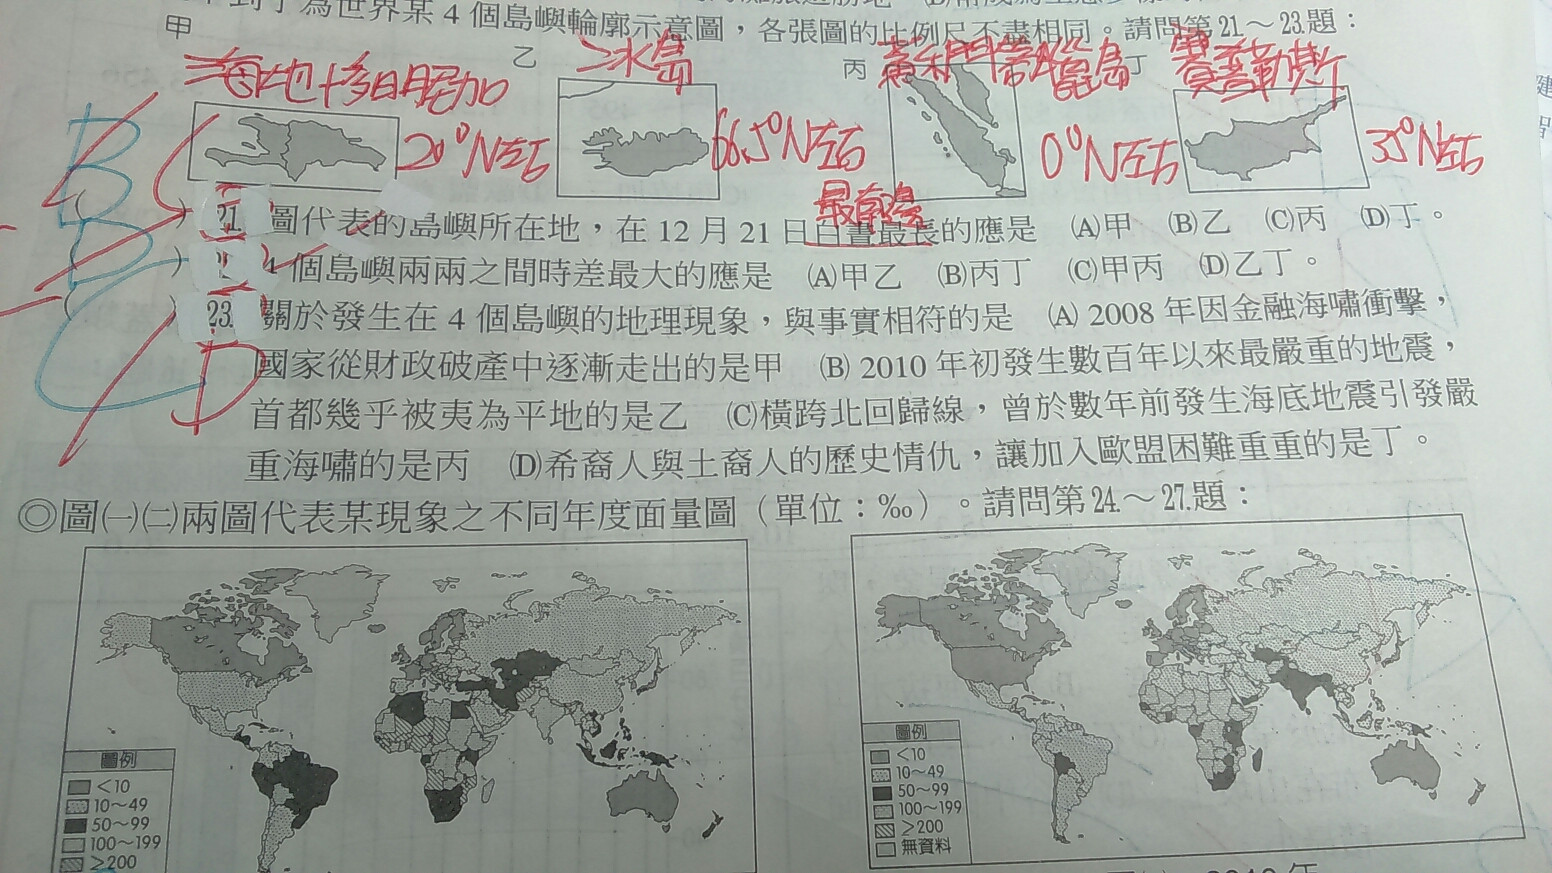 為世界某4個島嶼輪廓示意圖，各張圖的比例尺不盡相同。請問第21～23題：
甲
乙
丙
丁
海地 多明尼加
冰島
蘇門答臘島
賽普勒斯
20°N左右
66.5°N左右
0°N左右
35°N左右
B
最南邊
21 圖代表的島嶼所在地，在12月21日白晝最長的應是 (A)甲 (B)乙 (C)丙 (D)丁。
4個島嶼兩兩之間時差最大的應是 (A)甲乙 (B)丙丁 (C)甲丙 (D)乙丁。
23 關於發生在4個島嶼的地理現象，與事實相符的是 (A) 2008年因金融海嘯衝擊，
D
國家從財政破產中逐漸走出的是甲 (B) 2010年初發生數百年以來最嚴重的地震，
首都幾乎被夷為平地的是乙 (C)橫跨北回歸線，曾於數年前發生海底地震引發嚴
重海嘯的是丙 (D)希裔人與土裔人的歷史情仇，讓加入歐盟困難重重的是丁。
◎圖㈠㈡兩圖代表某現象之不同年度面量圖（單位：‰）。請問第24.～27.題：
圖例
<10
10～49
50～99
100～199
≥200
圖例
<10
10～49
50～99
100～199
≥200
無資料